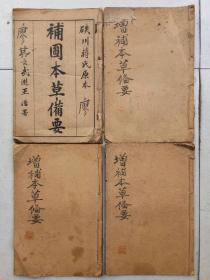 硖川蒋氏原本 廖
補圖本草備要
增補本草備要
增補本草備要
增補本草備要